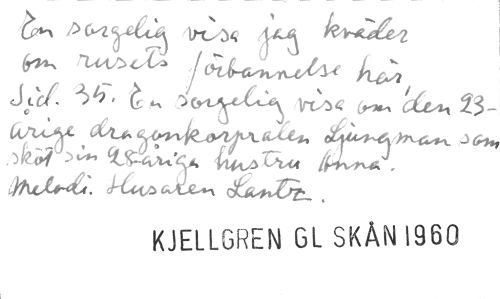 En sorgelig visa jag kväder
om rusets förbannelse här,
Sid. 35. En sorgelig visa om den 23-
årige dragonkorpralen Ljungman som
sköt sin 28-åriga hustru Anna.
Melodi. Husaren Lantz.
KJELLGREN GL SKÅN 1960